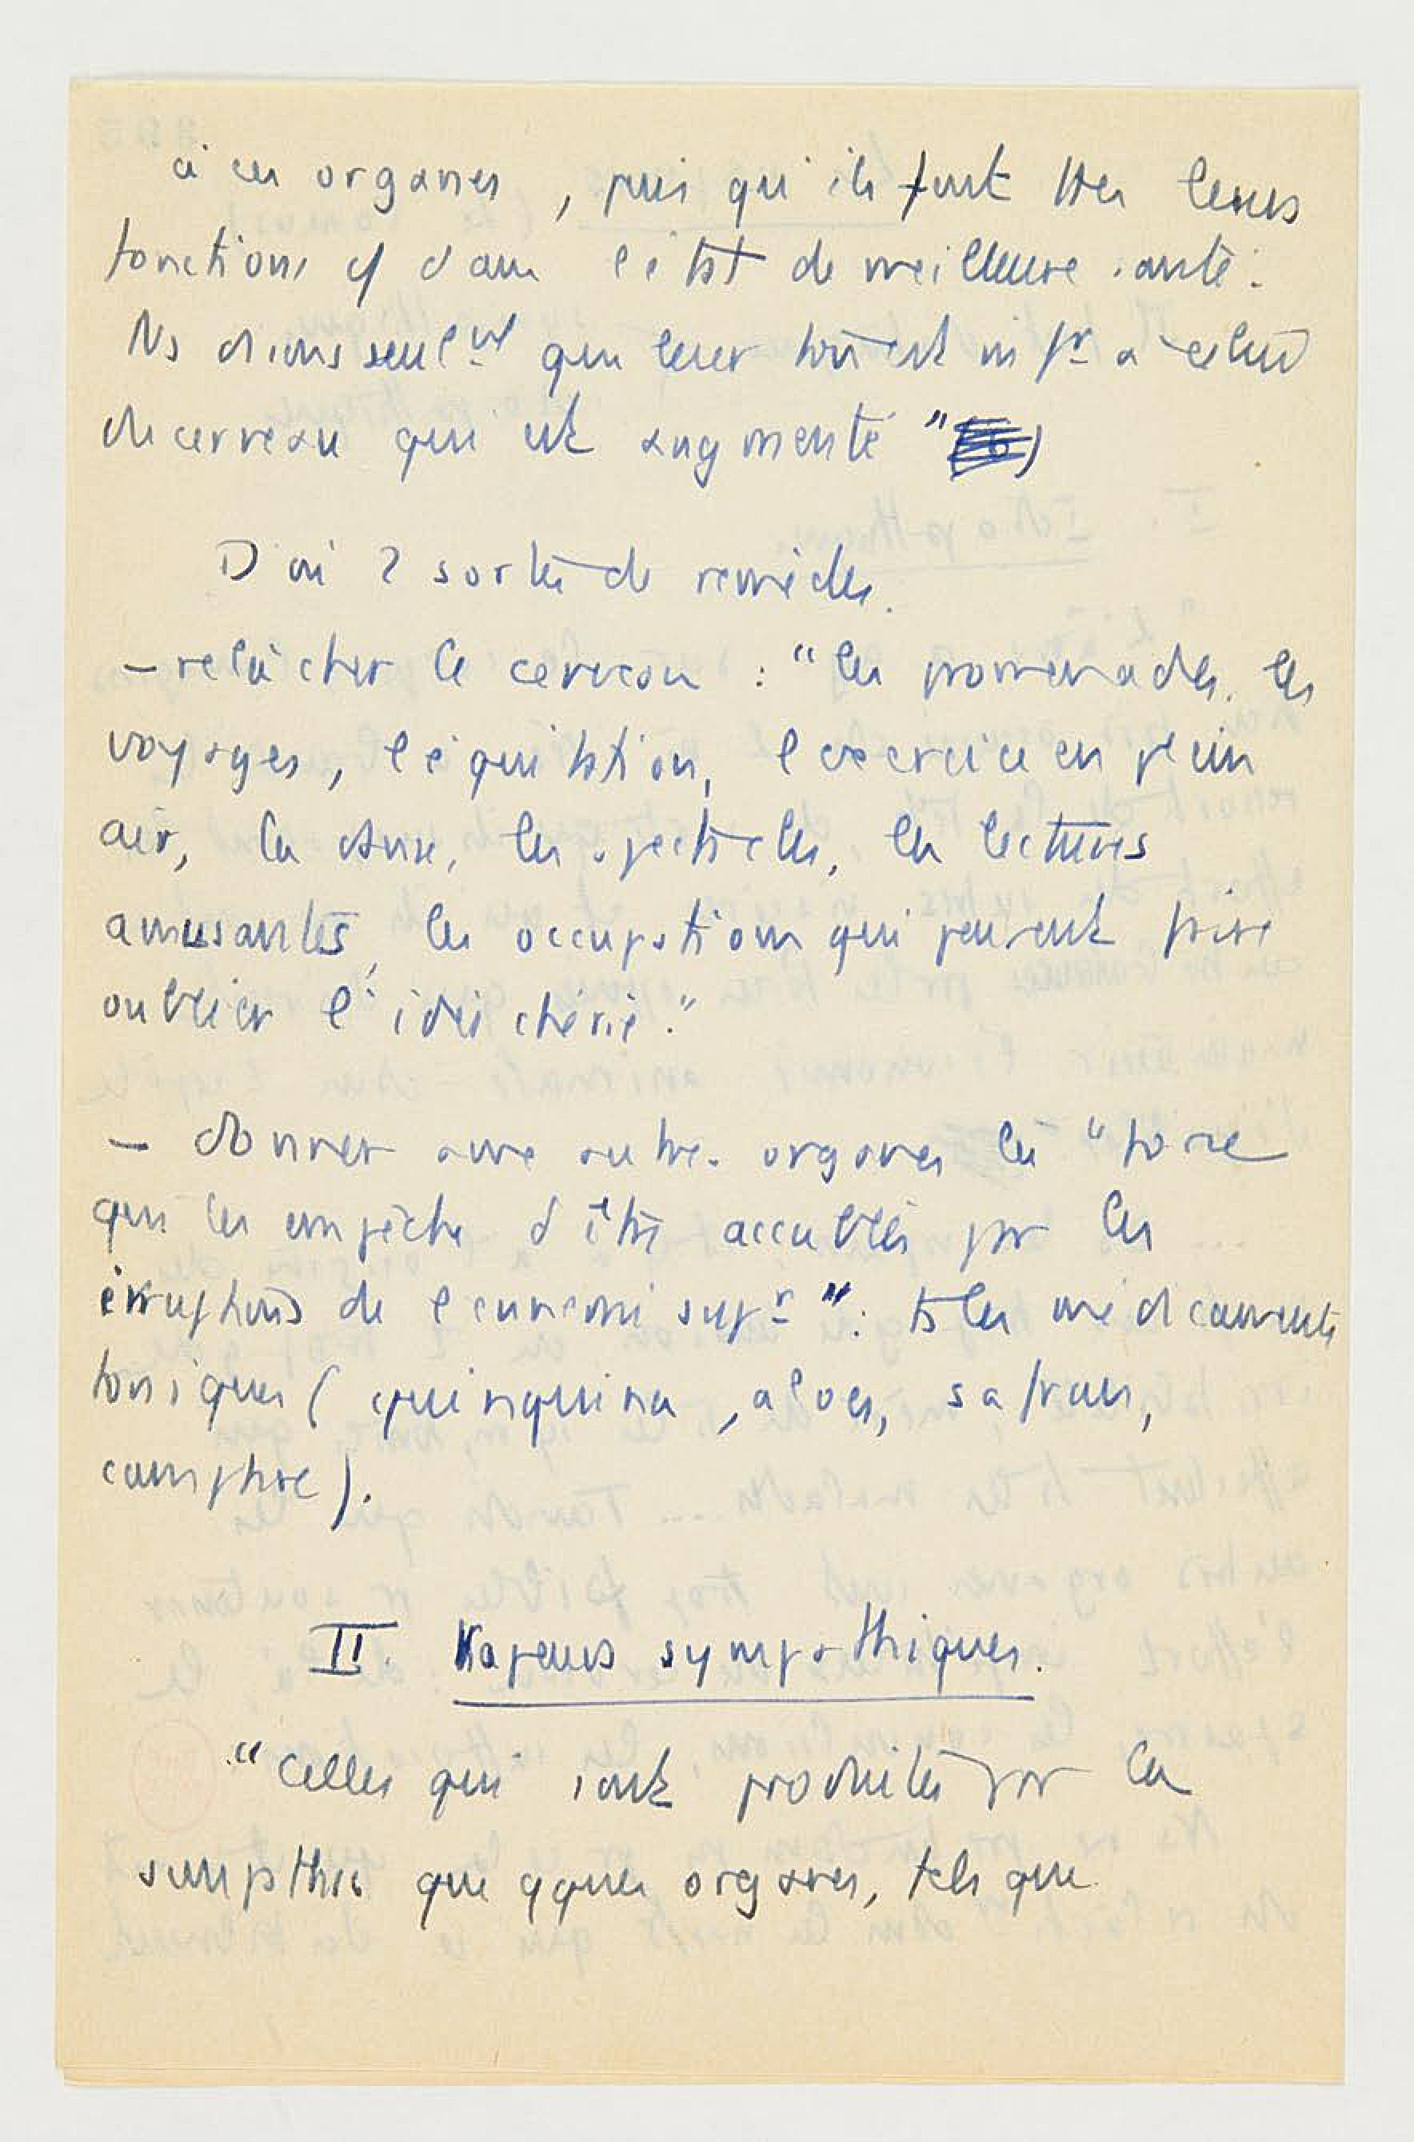 à ces organes, puis qu'ils font ttes leurs
fonctions cf dans l'état de meilleure santé.
Ns disons seulmt que leur ton est infr à celui
du cerveau qui est augmenté "
D'où 2 sortes de remèdes.
– relâcher le cerveau : "les promenades, les
voyages, l'équitation, l'exercice en plein
air, la danse, les spectacles, les lectures
amusantes, les occupations qui peuvent faire
oublier l'idée chérie."
– donner aux autres organes la "force
qui les empêche d'être accablés par les
irruptions de l'ennemi supr" : ts les médicaments
toniques (quinquina, aloes, safran,
camphre).
II. Vapeurs sympathiques.
"Celles qui sont produites par la
sympathie que qques organes, tels que